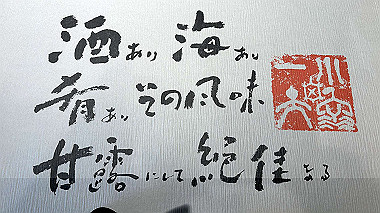 酒あり海あり
肴ありその風味
甘露にして絶佳なる